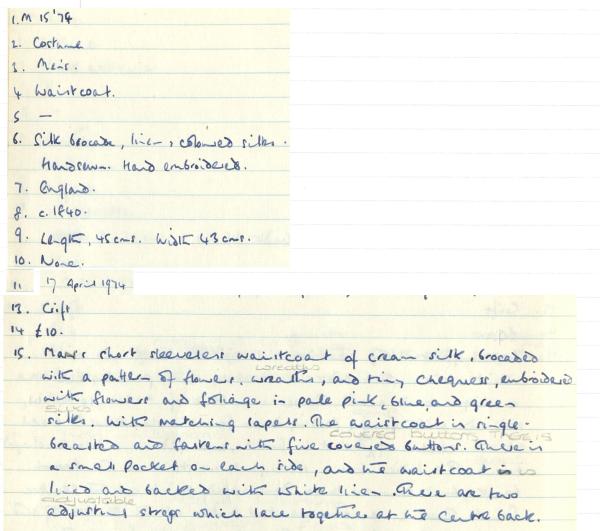 1. M 15'74
2. Costume
3. Men's.
4 Waistcoat.
5 —
6. Silk brocade, linen, coloured silks.
Handsewn. Hand embroidered.
7. England.
8. c.1840.
9. Length, 45cms. Width 43cms.
10. None.
11 17 April 1974
13. Gift
14 £10.
15. Man's short sleeveless waistcoat of cream silk, brocaded
wreaths
with a pattern of flowers, wreaths, and tiny chequers, embroidered
with flowers and foliage in pale pink, blue, and green
silks
silks. With matching lapels. The waistcoat is single-
covered buttons. There is
breasted and fastens with five covered buttons. There is
a small pocket on each side, and the waistcoat is is
lined and backed with white linen. There are two
adjustable
adjusting straps which lace together at the centre back.